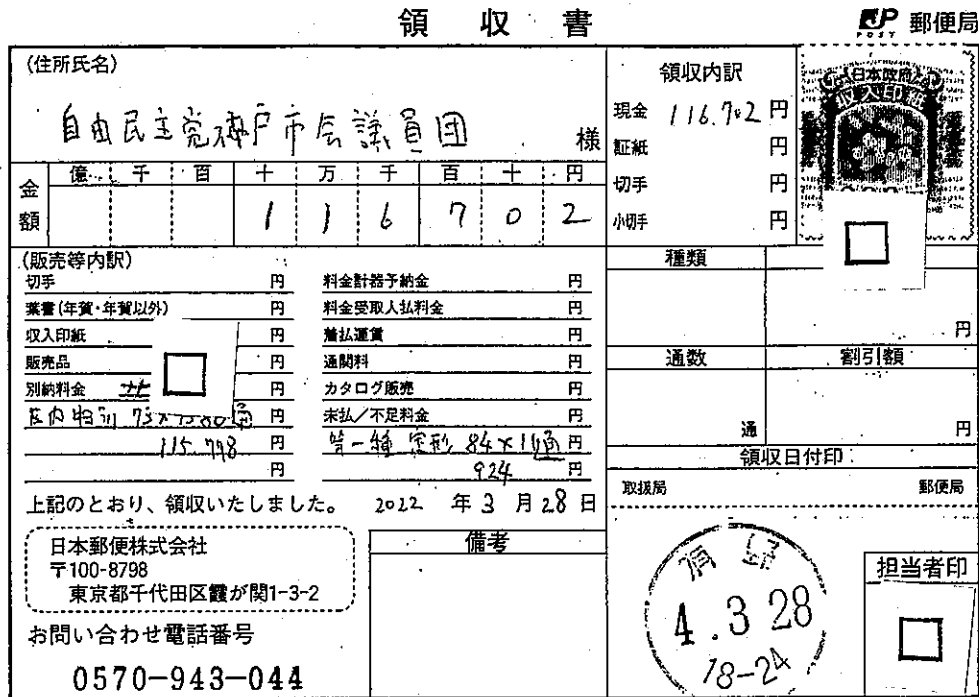 領収書
JP POST 郵便局
(住所氏名)
自由民主党神戸市会議員団 様
金額 億 千 百 十 万 千 百 十 円
1 1 6 7 0 2
領収内訳
現金 116.702 円
証紙 円
切手 円
小切手 円
日本政府
収入印紙
(販売等内訳)
切手 円
葉書(年賀・年賀以外) 円
収入印紙 円
販売品 円
別納料金
区内特別 円
115.798 円
円
料金計器予納金 円
料金受取人払料金 円
着払運賃 円
通関料 円
カタログ販売 円
未払/不足料金 円
第一種 定形 84×11通 円
924 円
種類
円
通数 割引額
通 円
領収日付印
取扱局 郵便局
上記のとおり、領収いたしました。 2022 年 3 月 28 日
日本郵便株式会社
〒100-8798
東京都千代田区霞が関1-3-2
お問い合わせ電話番号
0570-943-044
備考
4.3.28
18-24
担当者印